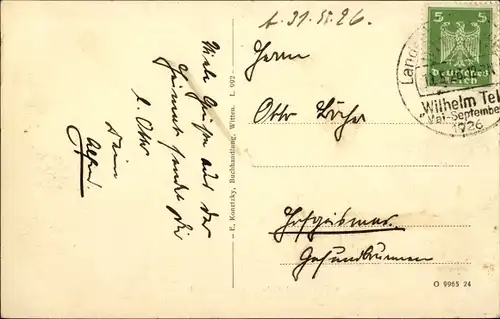 Viele Grüße aus der
Heimat sendet Dir
l. Otto
Dein
Alfred.
E. Konetzky, Buchhandlung, Witten. L. 992
Herrn
Otto
Hofgeismar.
Gesundbrunnen
5 5
Deutsches
Reich
Wilhelm Tel
Mai-Septembe
1926
O 9965 24